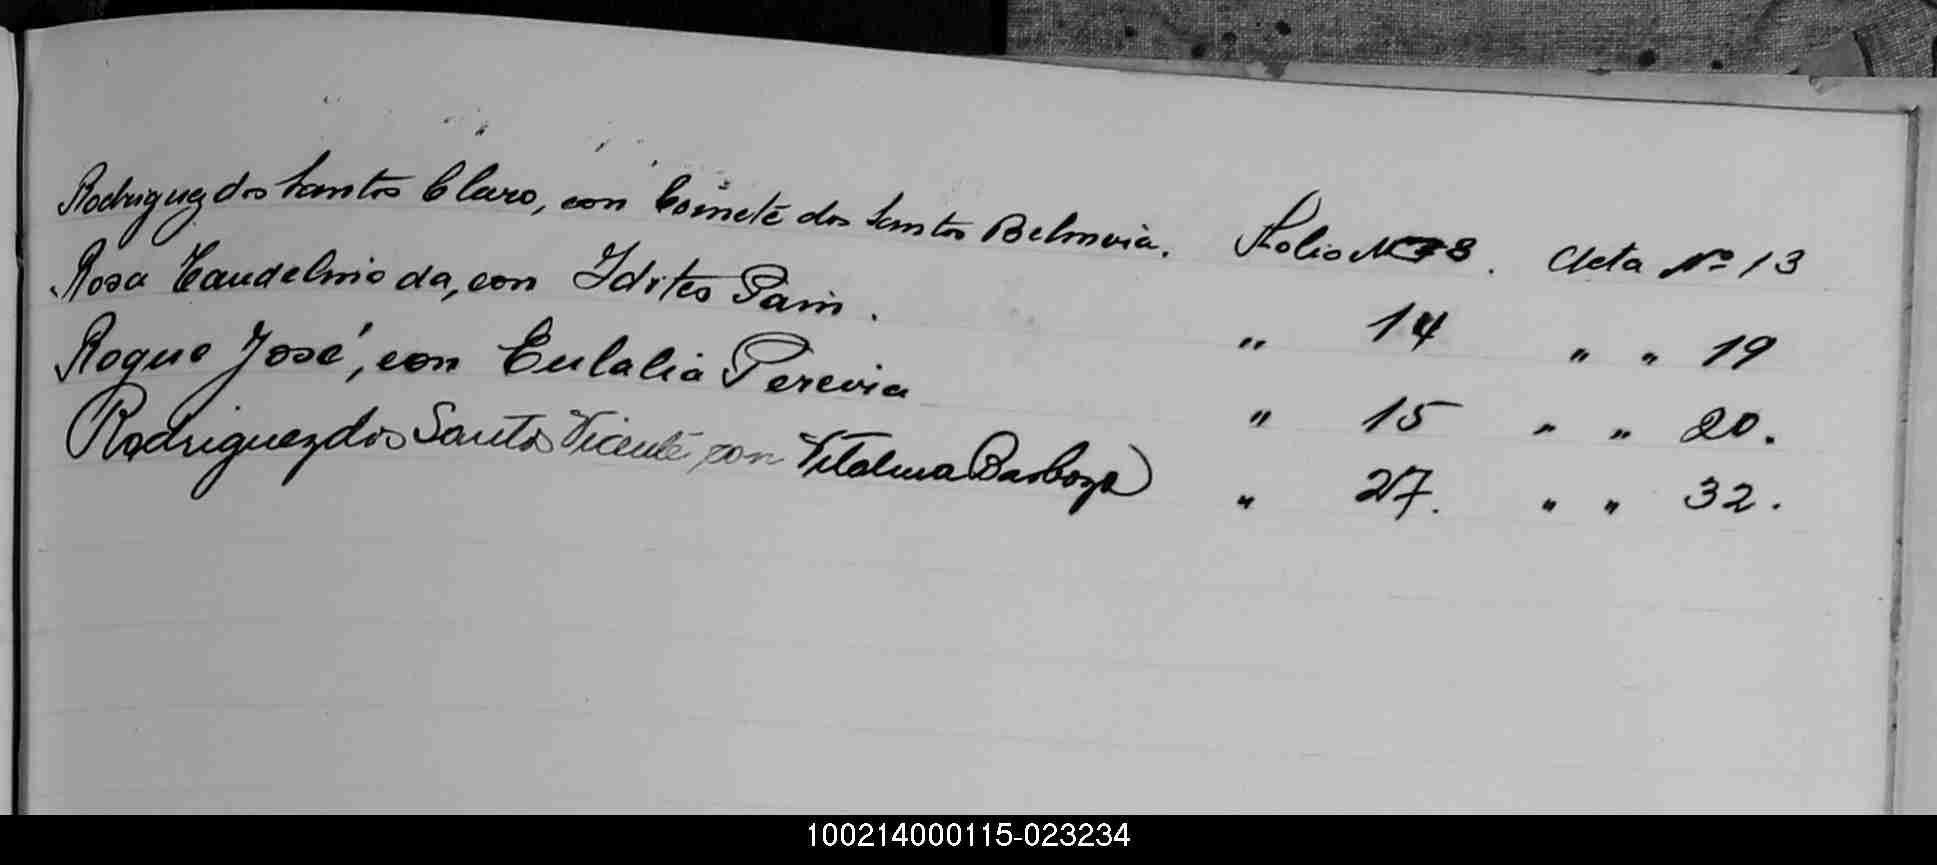 Rodriguez dos Santos Claro, con dos Santos Folio Nº 8. Acta Nº 13
Rosa da, con Pain. " 14 " " 19
Roque José, con Eulalia Pereira " 15 " " 20.
Rodriguez dos Santos Vicente con Vitalina Barboza " 27. " " 32.
100214000115-023234